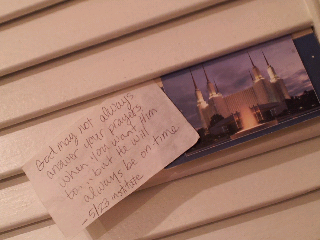 God may not always
answer your prayers
when you want Him
to... but He will
always be on time.
5/23 institute